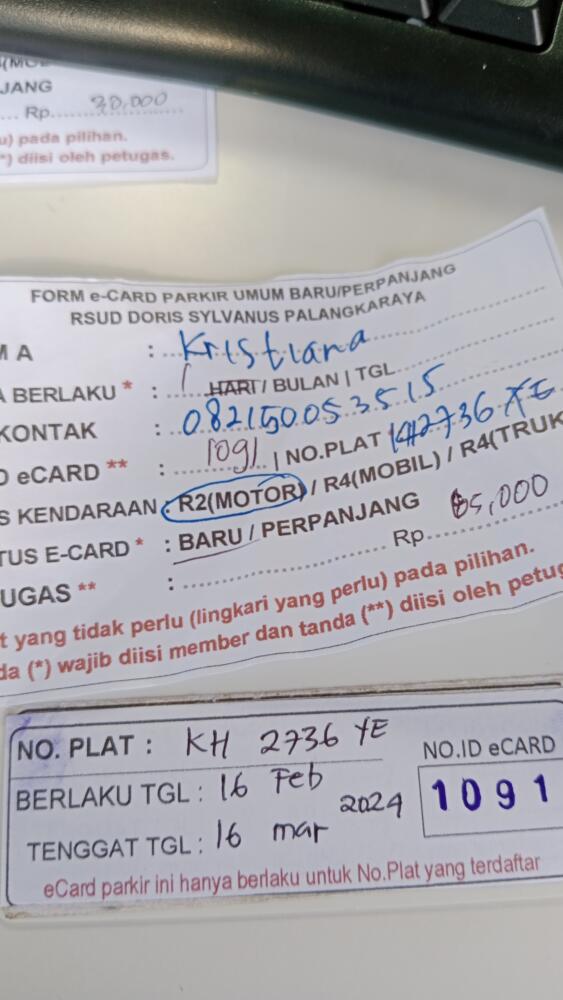 JANG
Rp. 30,000
u) pada pilihan.
*) diisi oleh petugas.
FORM e-CARD PARKIR UMUM BARU/PERPANJANG
RSUD DORIS SYLVANUS PALANGKARAYA
M A : Kristiana
A BERLAKU * : 1 HARI / BULAN | TGL.
KONTAK : 082150053515
D eCARD ** : 1091 | NO.PLAT KH 2736 YE
S KENDARAAN : R2(MOTOR) / R4(MOBIL) / R4(TRUK
TUS E-CARD * : BARU / PERPANJANG
UGAS ** : Rp. 65,000
t yang tidak perlu (lingkari yang perlu) pada pilihan.
da (*) wajib diisi member dan tanda (**) diisi oleh petug
NO. PLAT : KH 2736 YE
NO.ID eCARD
BERLAKU TGL : 16 Feb
2024
1091
TENGGAT TGL : 16 mar
eCard parkir ini hanya berlaku untuk No.Plat yang terdaftar